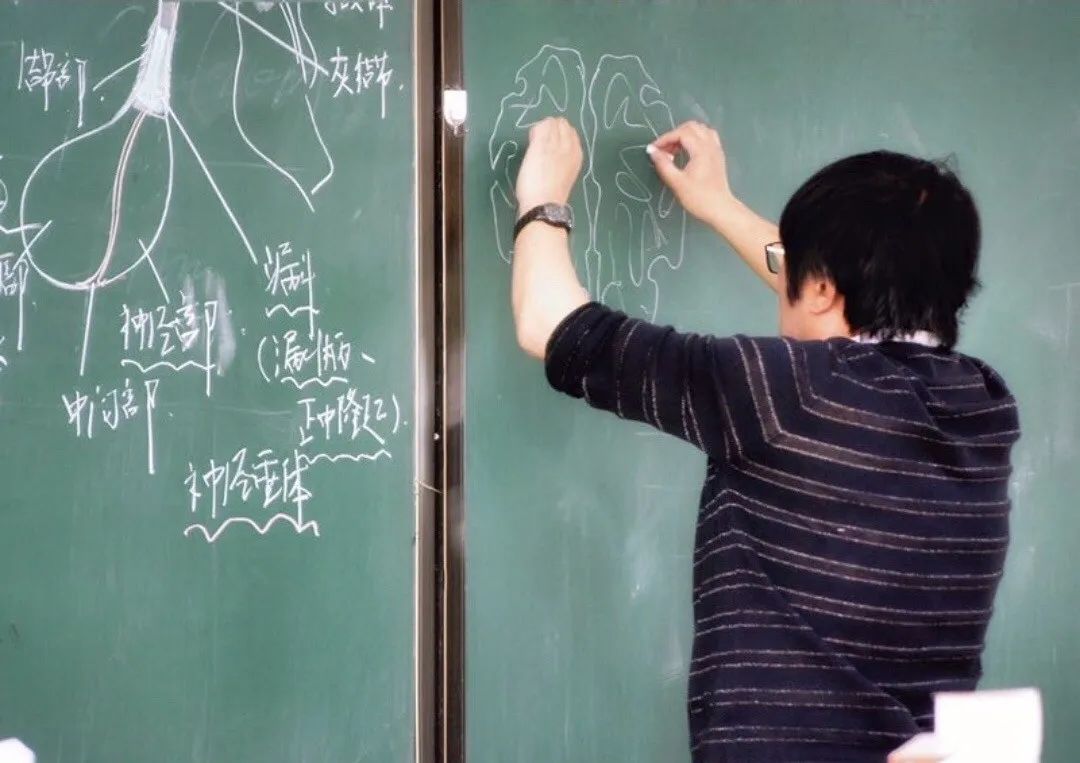 结节部
灰结节.
漏斗
神经部
(漏斗柄、
中间部.
正中隆起).
神经垂体
部